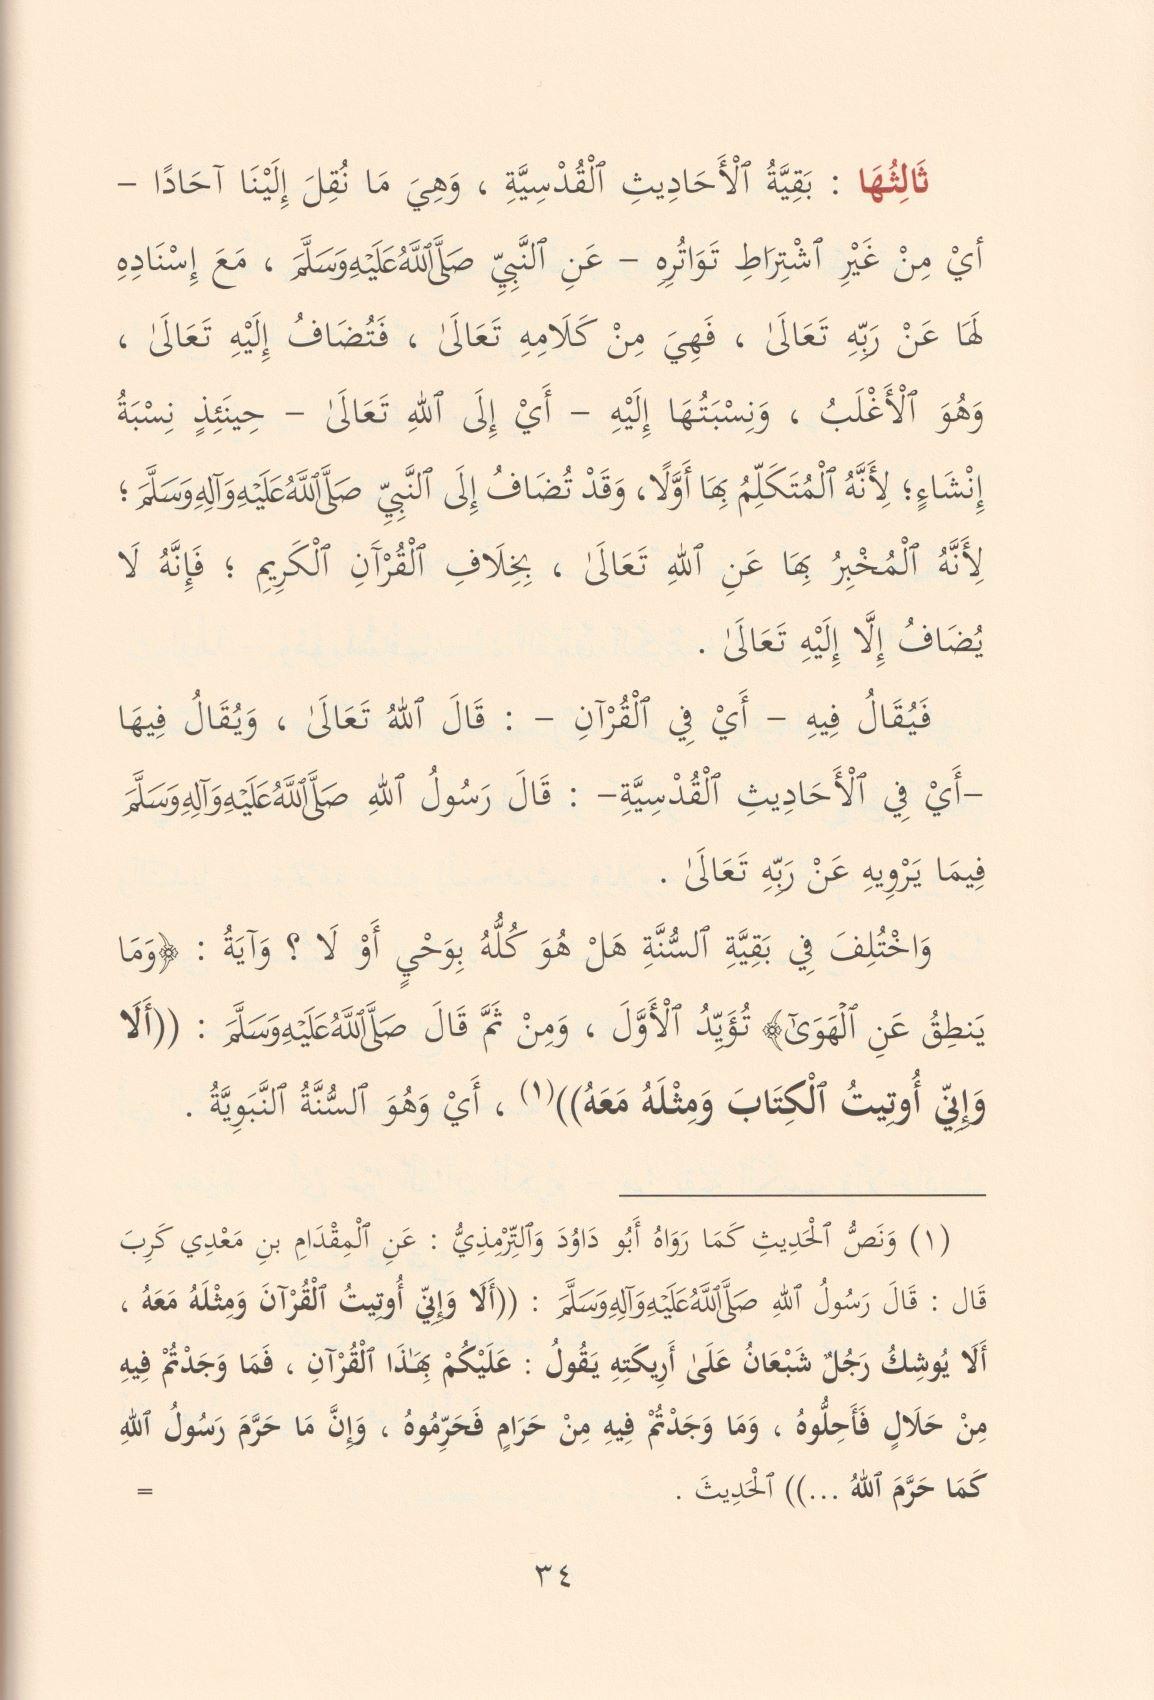 ثَالِثُهَا : بَقِيَّةُ ٱلْأَحَادِيثِ ٱلْقُدْسِيَّةِ ، وَهِيَ مَا نُقِلَ إِلَيْنَا آحَادًا –
أيْ مِنْ غَيْرِ ٱشْتِرَاطِ تَوَاتُرِهِ – عَنِ ٱلنَّبِيِّ صَلَّىٱللَّهُعَلَيْهِوَسَلَّمَ ، مَعَ إِسْنَادِهِ
لَهَا عَنْ رَبِّهِ تَعَالَىٰ ، فَهِيَ مِنْ كَلَامِهِ تَعَالَىٰ ، فَتُضَافُ إِلَيْهِ تَعَالَىٰ ،
وَهُوَ ٱلْأَغْلَبُ ، وَنِسْبَتُهَا إِلَيْهِ – أَيْ إِلَى ٱللهِ تَعَالَىٰ – حِينَئِذٍ نِسْبَةُ
إِنْشَاءٍ؛ لِأَنَّهُ ٱلْمُتَكَلِّمُ بِهَا أَوَّلًا، وَقَدْ تُضَافُ إِلَى ٱلنَّبِيِّ صَلَّىٱللَّهُعَلَيْهِوَآلِهِوَسَلَّمَ؛
لِأَنَّهُ ٱلْمُخْبِرُ بِهَا عَنِ ٱللهِ تَعَالَىٰ ، بِخِلَافِ ٱلْقُرْآنِ ٱلْكَرِيمِ ؛ فَإِنَّهُ لَا
يُضَافُ إِلَّا إِلَيْهِ تَعَالَىٰ .
فَيُقَالُ فِيهِ – أَيْ فِي ٱلْقُرْآنِ – : قَالَ ٱللهُ تَعَالَىٰ ، وَيُقَالُ فِيهَا
–أَيْ فِي ٱلْأَحَادِيثِ ٱلْقُدْسِيَّةِ– : قَالَ رَسُولُ ٱللهِ صَلَّىٱللَّهُعَلَيْهِوَآلِهِوَسَلَّمَ
فِيمَا يَرْوِيهِ عَنْ رَبِّهِ تَعَالَىٰ .
وَاخْتُلِفَ فِي بَقِيَّةِ ٱلسُّنَّةِ هَلْ هُوَ كُلُّهُ بِوَحْيٍ أَوْ لَا ؟ وَآيَةُ : ﴿وَمَا
يَنطِقُ عَنِ ٱلْهَوَىٰٓ﴾ تُؤَيِّدُ ٱلْأَوَّلَ ، وَمِنْ ثَمَّ قَالَ صَلَّىٱللَّهُعَلَيْهِوَسَلَّمَ : ((أَلَا
وَإِنِّي أُوتِيتُ ٱلْكِتَابَ وَمِثْلَهُ مَعَهُ))(١) ، أَيْ وَهُوَ ٱلسُّنَّةُ ٱلنَّبَوِيَّةُ .
(١) وَنَصُّ ٱلْحَدِيثِ كَمَا رَوَاهُ أَبُو دَاوُدَ وَٱلتِّرْمِذِيُّ : عَنِ ٱلْمِقْدَامِ بنِ مَعْدِي كَرِبَ
قَال : قَالَ رَسُولُ ٱللهِ صَلَّىٱللَّهُعَلَيْهِوَآلِهِوَسَلَّمَ : ((أَلَا وَإِنِّي أُوتِيتُ ٱلْقُرْآنَ وَمِثْلَهُ مَعَهُ ،
أَلَا يُوشِكُ رَجُلٌ شَبْعَانُ عَلَىٰ أَرِيكَتِهِ يَقُولُ : عَلَيْكُمْ بِهَـٰذَا ٱلْقُرْآنِ ، فَمَا وَجَدْتُمْ فِيهِ
مِنْ حَلَالٍ فَأَحِلُّوهُ ، وَمَا وَجَدْتُمْ فِيهِ مِنْ حَرَامٍ فَحَرِّمُوهُ ، وَإِنَّ مَا حَرَّمَ رَسُولُ ٱللهِ
كَمَا حَرَّمَ ٱللهُ ...)) ٱلْحَدِيثَ . =
٣٤